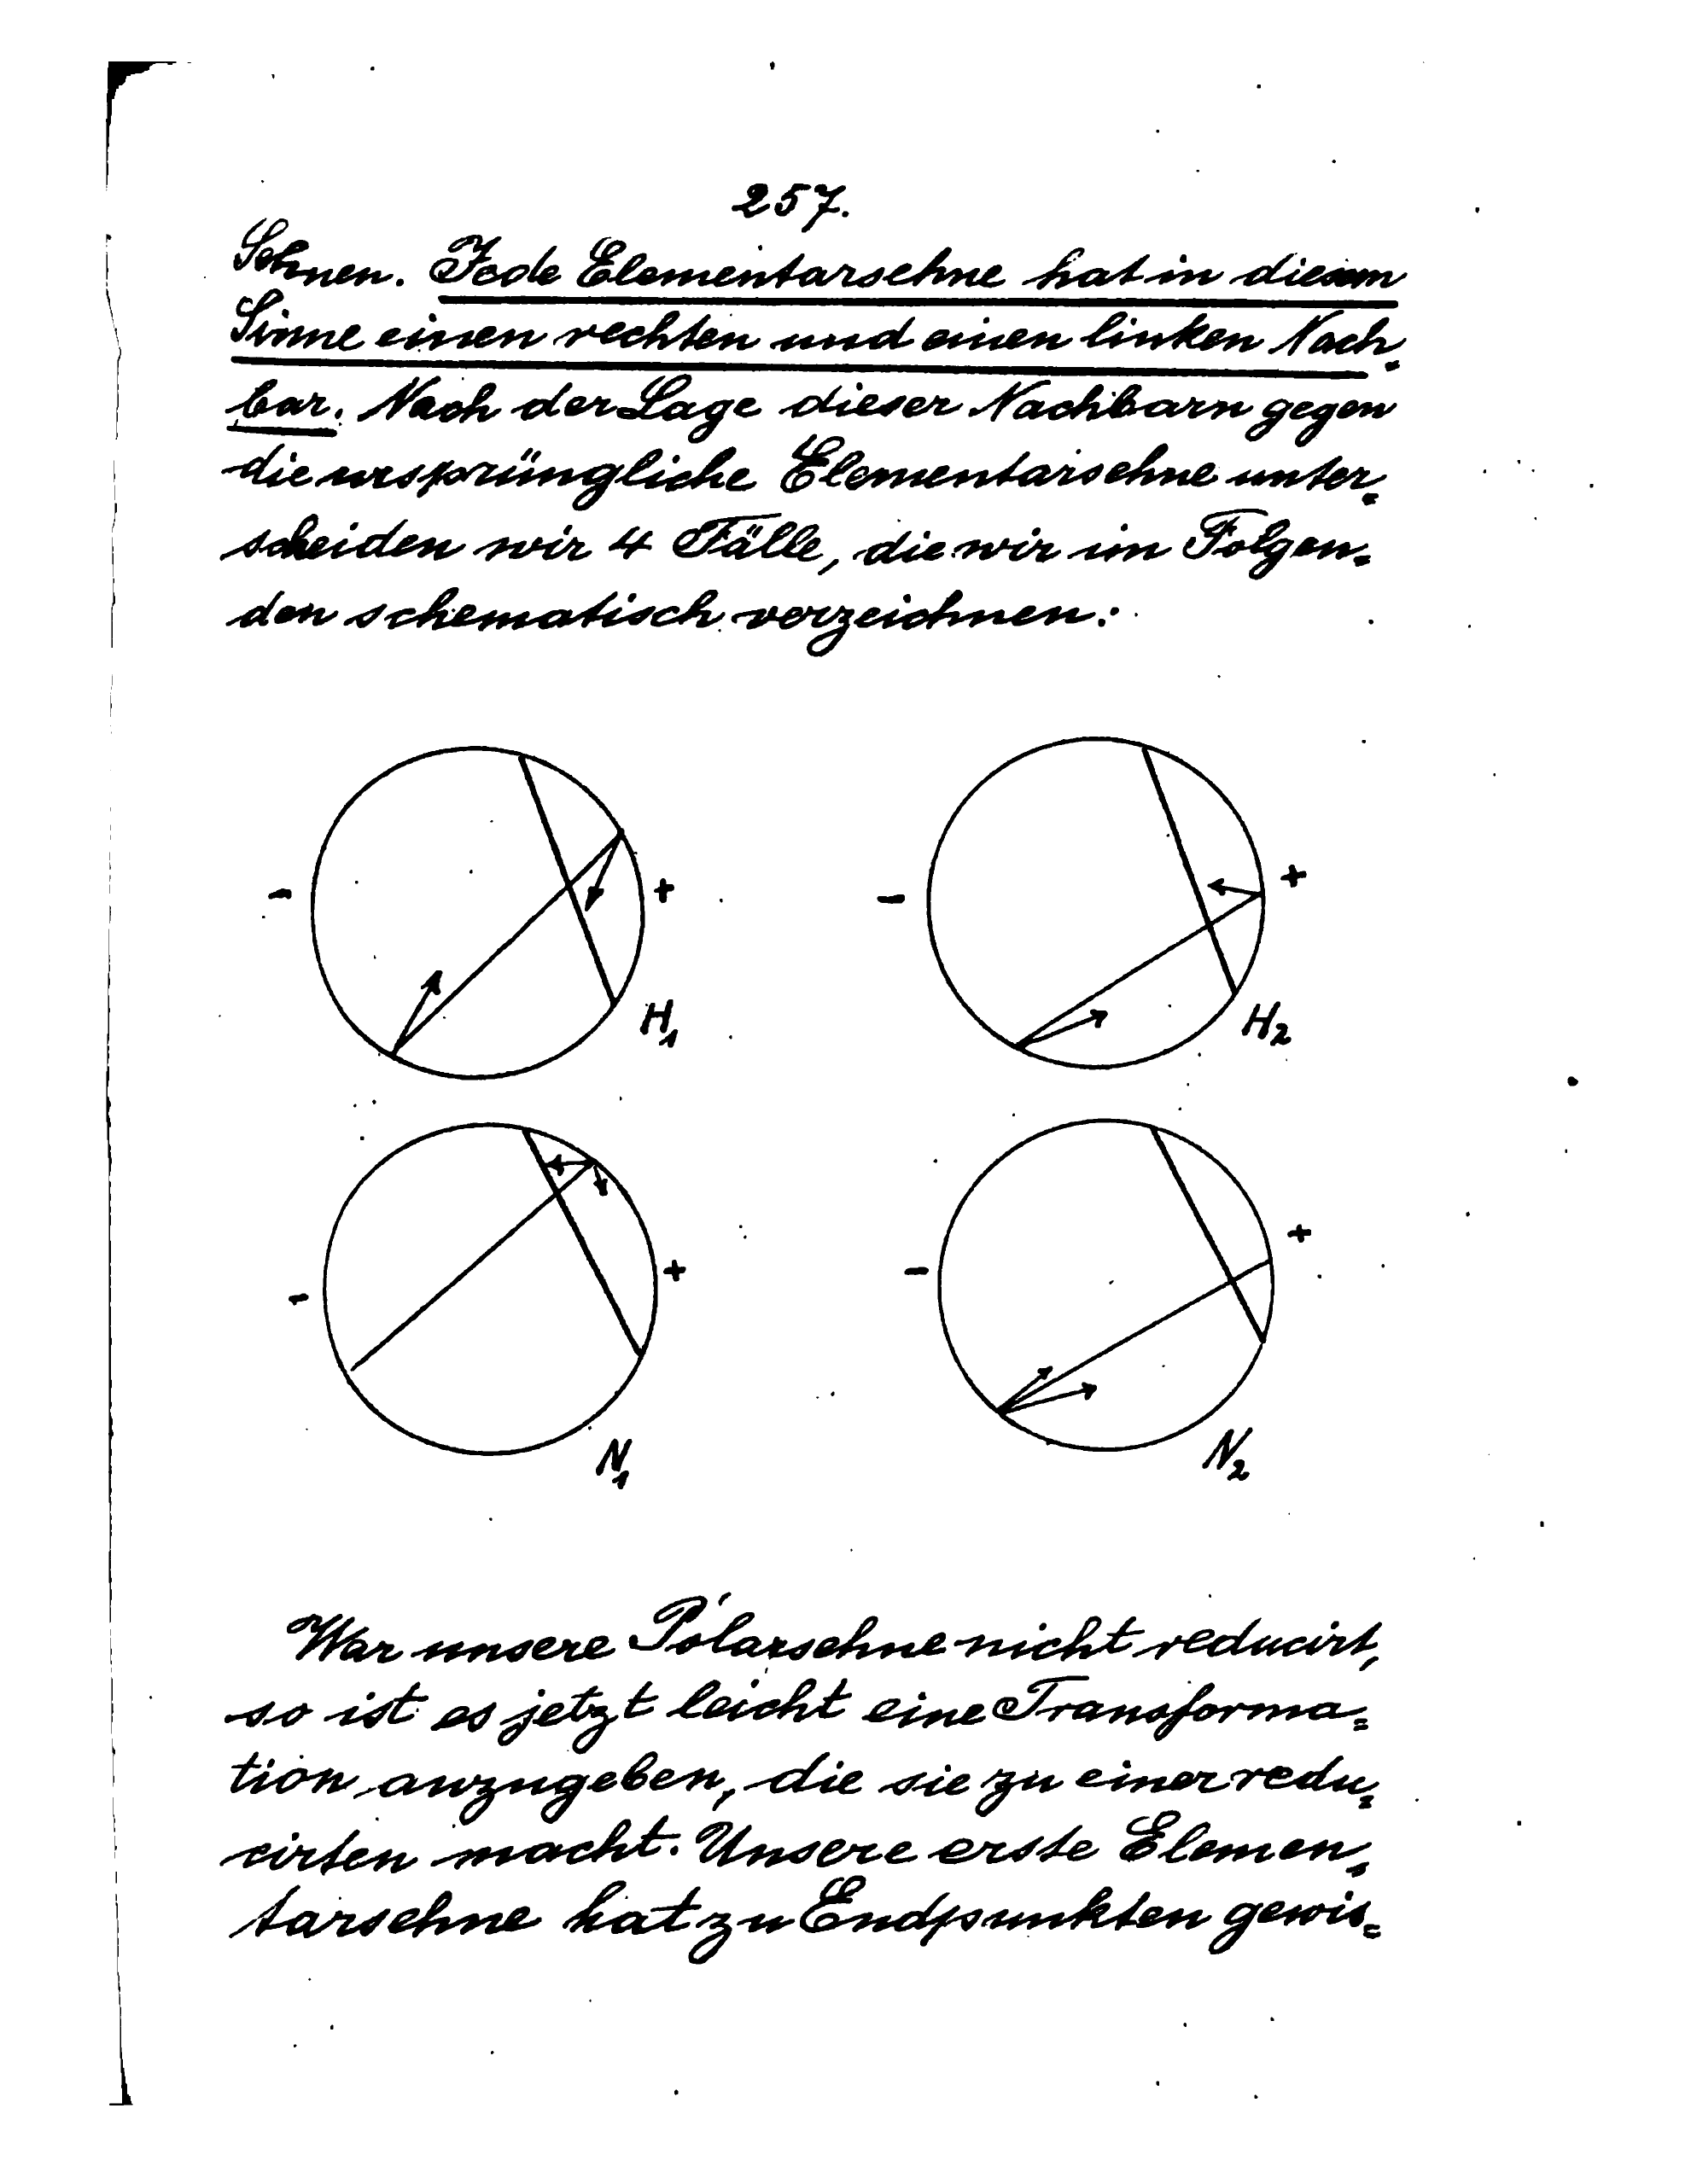 257.
Sehnen. Jede Elementarsehne hat in diesem
Sinne einen rechten und einen linken Nach-
bar. Nach der Lage dieser Nachbarn gegen
die ursprüngliche Elementarsehne unter-
scheiden wir 4 Fälle, die wir im Folgen-
den schematisch verzeichnen:
- + - +
H1 H2
- + - +
N1 N2
War unsere Polarsehne nicht reducirt,
so ist es jetzt leicht eine Transforma-
tion anzugeben, die sie zu einer redu-
cirten macht. Unsere erste Elemen-
tarsehne hat zu Endpunkten gewis-